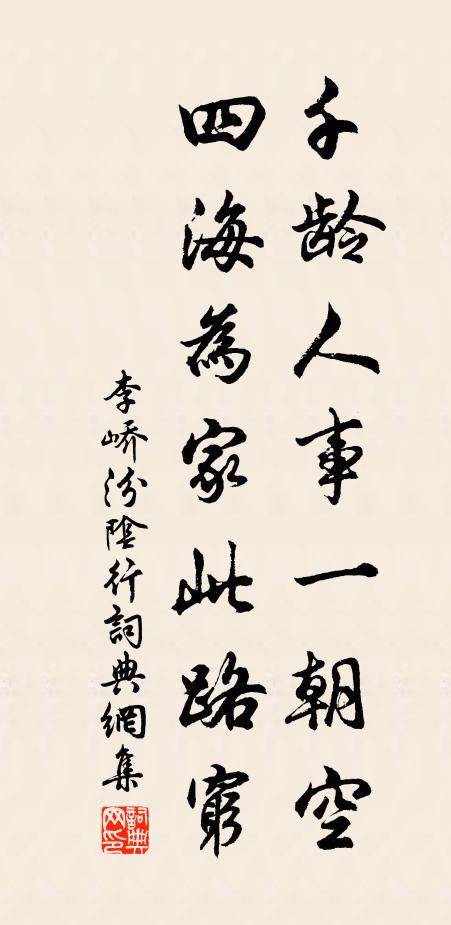 千龄人事一朝空
四海為家此路窮
李嶠汾陰行詞典網集
詞典
网印